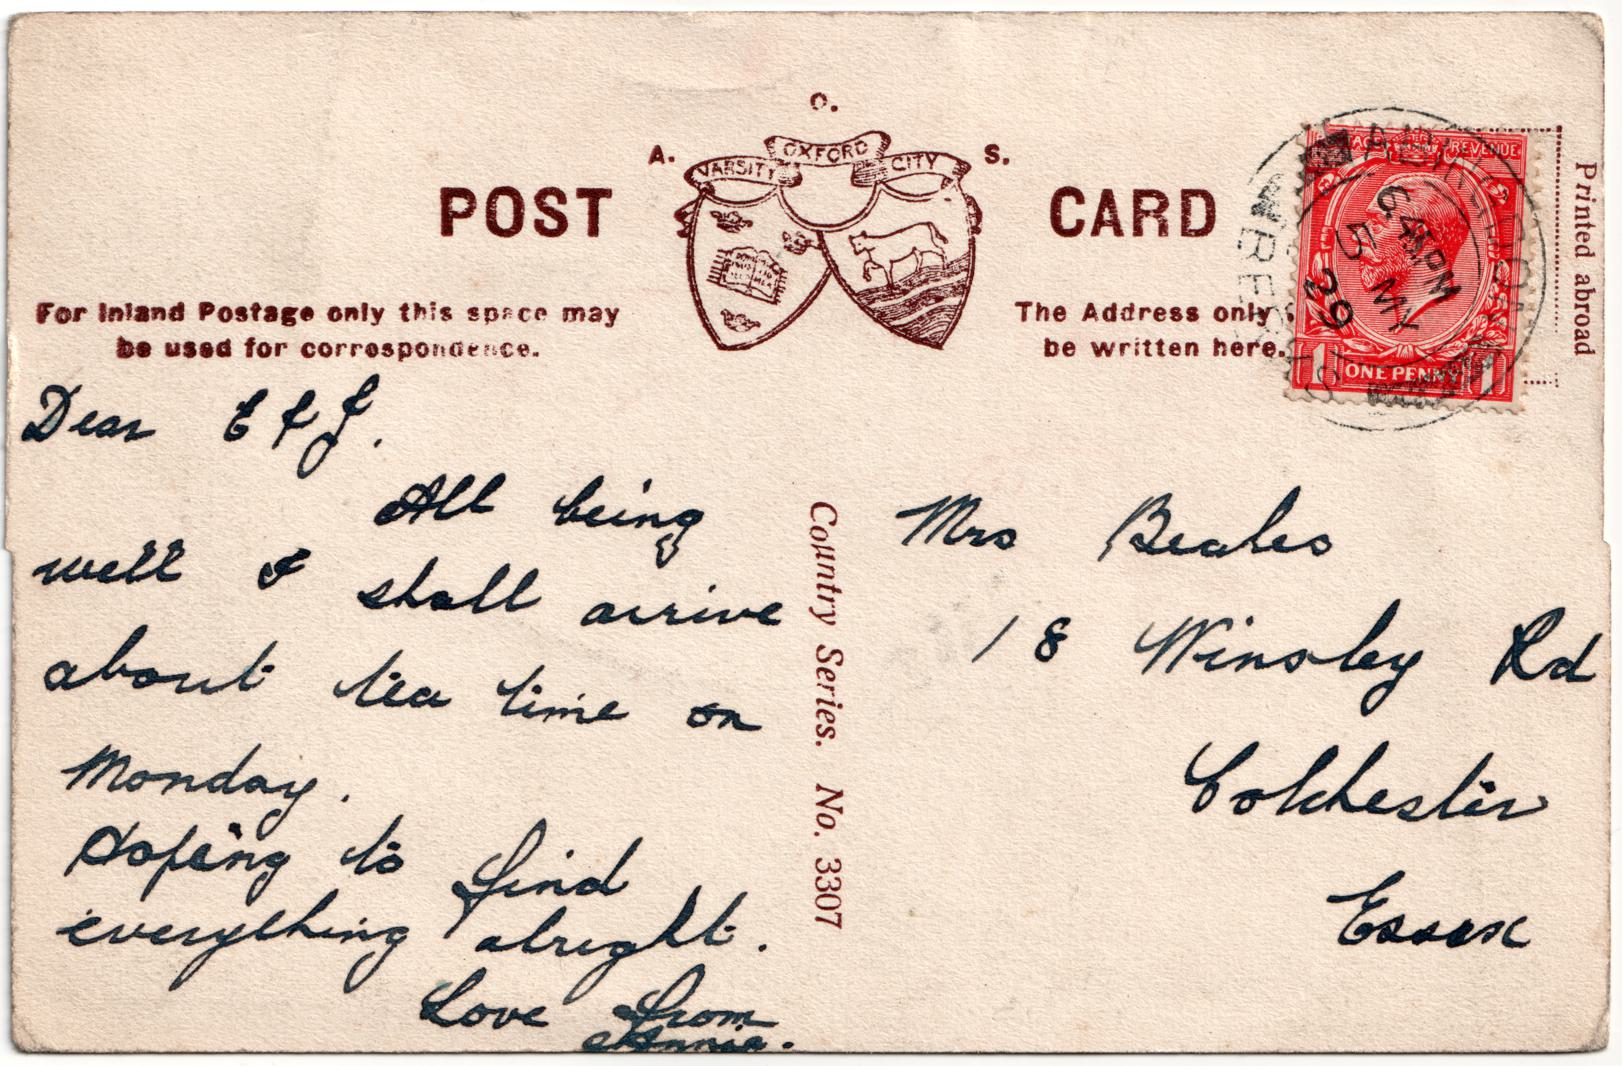 O.
A. S.
VARSITY OXFORD CITY
POST CARD
For Inland Postage only this space may
be used for correspondence.
The Address only
be written here.
Printed abroad
POSTAGE REVENUE
ABINGDON
6 45 PM
5 MY
29
BERKS
1 ONE PENNY 1
Dear E & J.
All being
well I shall arrive
about tea time on
Monday.
Hoping to find
everything alright.
Love from
Annie.
Country Series. No. 3307
Mrs Beales
18 Winsley Rd
Colchester
Essex